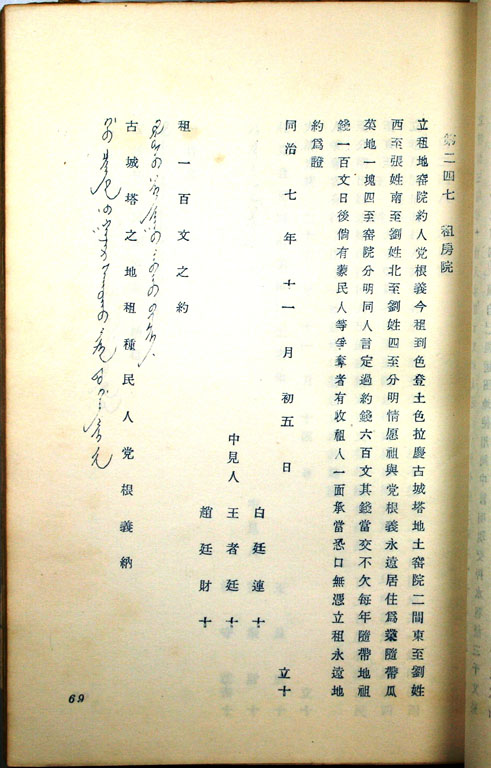 第二四七 租房院
立租地窑院約人党根義今租到色登土色拉慶古城塔地土窑院二間東至劉姓
西至張姓南至劉姓北至劉姓四至分明情愿祖與党根義永遠居住為業隨帶瓜
菜地一塊四至窑院分明同人言定過約錢六百文其錢當交不欠每年隨帶地租
錢一百文日後倘有蒙民人等爭奪者有收祖人一面承當恐口無憑立租永遠地
約為證
同治 七年 十一月 初五日 立十
白廷連十
中見人 王者廷十
趙廷財十
租一百文之約
古城塔之地租種民人党根義納
69